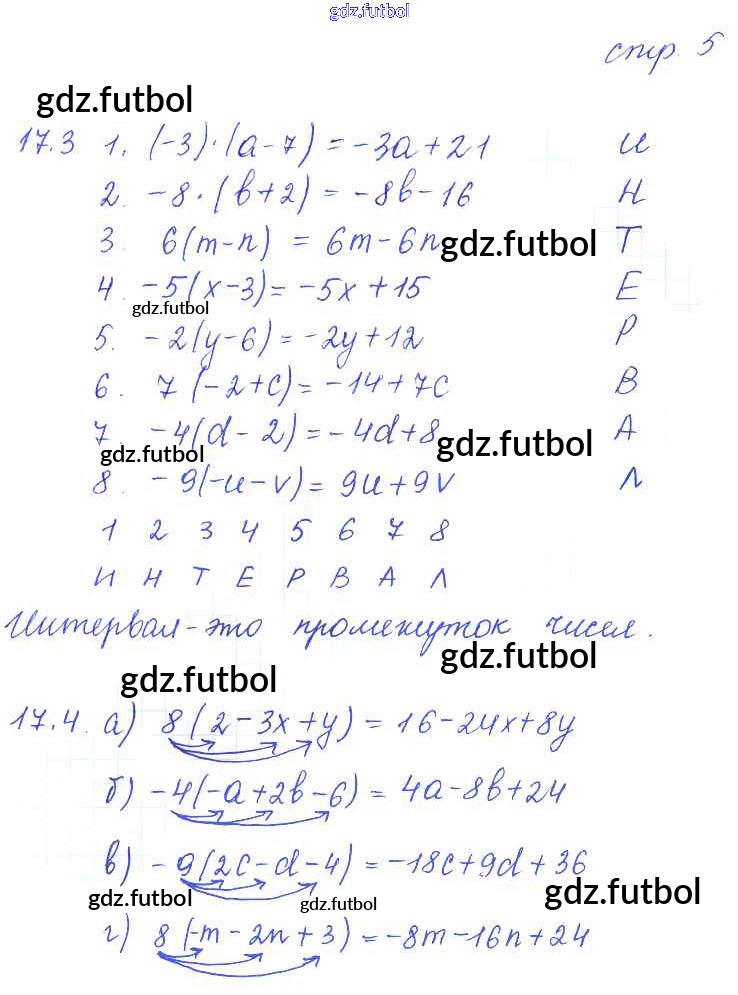 gdz.futbol
стр. 5
gdz.futbol
17.3 1. (-3)·(a-7) = -3a+21 И
2. -8·(b+2) = -8b-16 Н
3. 6(m-n) = 6m-6n gdz.futbol Т
4. -5(x-3) = -5x+15 Е
gdz.futbol
5. -2(y-6) = -2y+12 Р
6. 7(-2+c) = -14+7c В
7. -4(d-2) = -4d+8 gdz.futbol А
gdz.futbol
8. -9(-u-v) = 9u+9v Л
1 2 3 4 5 6 7 8
И Н Т Е Р В А Л
Интервал-это промежуток чисел.
gdz.futbol
gdz.futbol
17.4. а) 8(2-3x+y) = 16-24x+8y
б) -4(-a+2b-6) = 4a-8b+24
в) -9(2c-d-4) = -18c+9d+36
gdz.futbol gdz.futbol gdz.futbol
г) 8(-m-2n+3) = -8m-16n+24